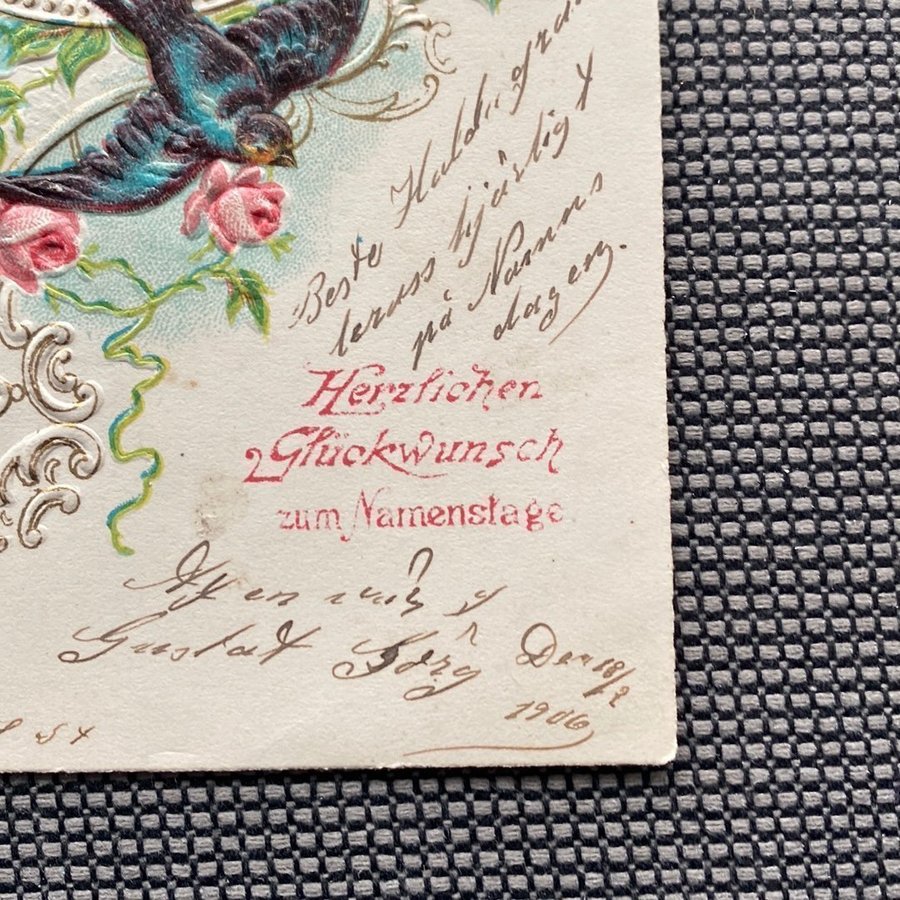 Beste Hulda gra
teras hjärtligt
på Namns
dagen.
Herzlichen
Glückwunsch
zum Namenstage
Af en
Gustaf Den 18/2
1906